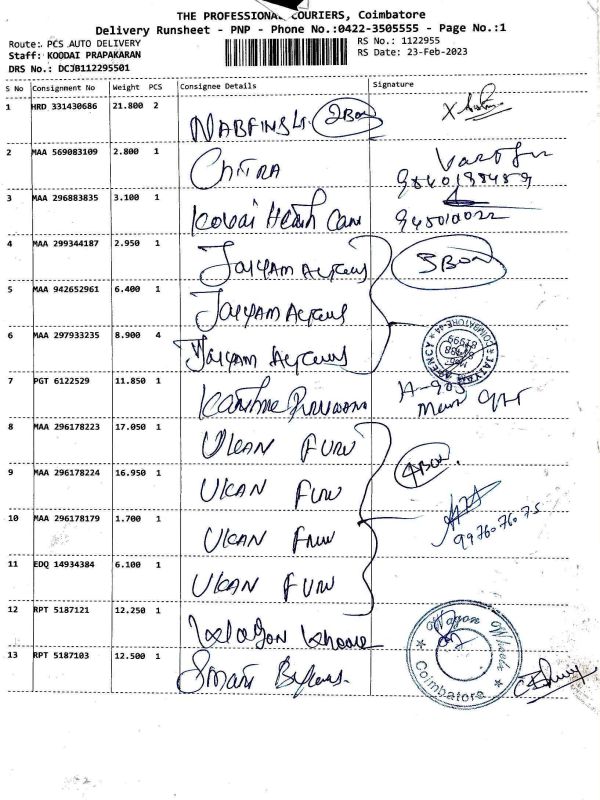 THE PROFESSIONAL COURIERS, Coimbatore
Delivery Runsheet - PNP - Phone No.:0422-3505555 - Page No.:1
Route: PCS AUTO DELIVERY
RS No.: 1122955
Staff: KOODAI PRAPAKARAN
RS Date: 23-Feb-2023
DRS No.: DCJB112295501
S No Consignment No Weight PCS Consignee Details Signature
1 HRD 331430686 21.800 2 NABFINS 2Box
2 MAA 569083109 2.800 1 CHITRA
3 MAA 296883835 3.100 1 Kovai Health Care
4 MAA 299344187 2.950 1 JAIYAM 5 Box
5 MAA 942652961 6.400 1 JAIYAM
6 MAA 297933235 8.900 4 JAIYAM
JAIYAM AGENCY COIMBATORE-44
7 PGT 6122529 11.850 1
8 MAA 296178223 17.050 1 ULKAN FURN
9 MAA 296178224 16.950 1 ULKAN FURN 4Box
10 MAA 296178179 1.700 1 ULKAN FURN
9976076075
11 EDQ 14934384 6.100 1 ULKAN FURN
12 RPT 5187121 12.250 1
Wagon Wheels Coimbatore
13 RPT 5187103 12.500 1 Smart